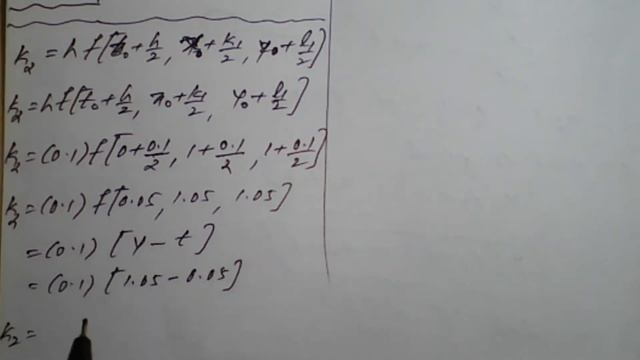 k₂ = h f[t₀ + h/2, x₀ + k₁/2, y₀ + l₁/2]
k₂ = h f[t₀ + h/2, x₀ + k₁/2, y₀ + l₁/2]
k₂ = (0.1) f[0 + 0.1/2, 1 + 0.1/2, 1 + 0.1/2]
k₂ = (0.1) f[0.05, 1.05, 1.05]
= (0.1) [y - t]
= (0.1) [1.05 - 0.05]
k₂ =